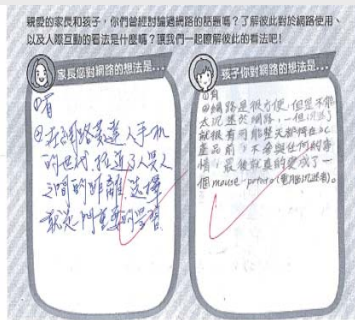 親愛的家長和孩子，你們曾經討論過網路的話題嗎？了解彼此對於網路使用、
以及人際互動的看法是什麼嗎？讓我們一起瞭解彼此的看法吧！
家長您對網路的想法是...
①有
②在網路發達人手機
的世代，拉近了人與人
之間的距離，選擇
就是門重要的學習
孩子你對網路的想法是...
①有
②網路是很方便，但是不能
太沉迷於網路，一但沉迷了
就很有可能整天都待在3C
產品前，不參與任何的事
情，最後就真的變成了一
個mouse-potato(電腦沉迷者)。